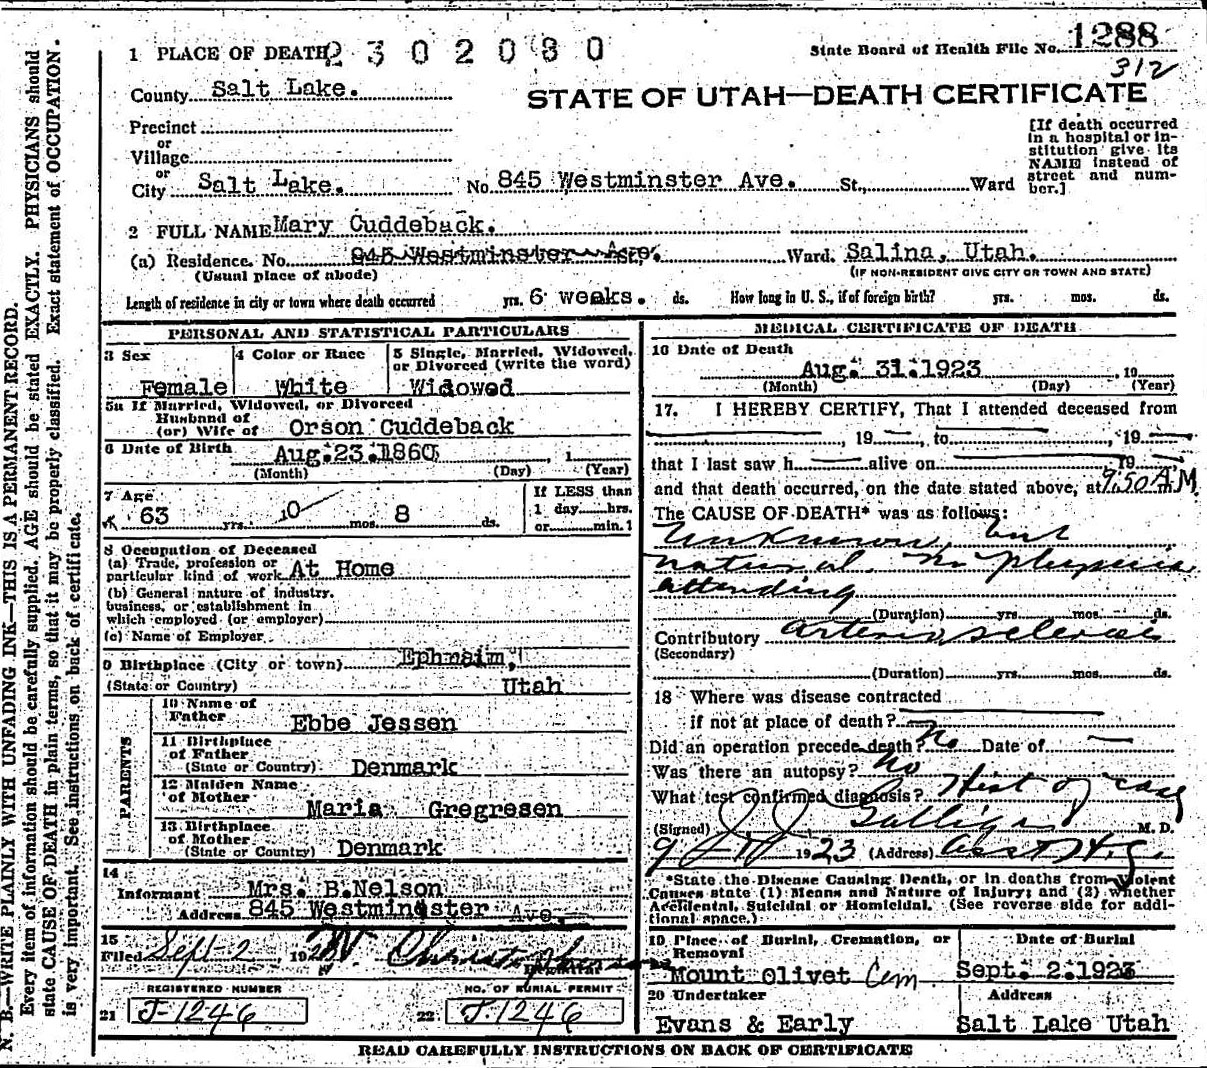 1 PLACE OF DEATH 2302080
State Board of Health File No. 1288
312
County Salt Lake.
STATE OF UTAH—DEATH CERTIFICATE
Precinct
or
Village
or
City Salt Lake. No 845 Westminster Ave. St., Ward
[If death occurred
in a hospital or in-
stitution give its
NAME instead of
street and num-
ber.]
2 FULL NAME Mary Cuddeback.
(a) Residence. No. 845 Westminster Ave. Ward. Salina, Utah.
(Usual place of abode) (IF NON-RESIDENT GIVE CITY OR TOWN AND STATE)
Length of residence in city or town where death occurred yrs. 6 weeks. ds. How long in U. S., if of foreign birth? yrs. mos. ds.
PERSONAL AND STATISTICAL PARTICULARS
3 Sex
Female
4 Color or Race
White
5 Single, Married, Widowed,
or Divorced (write the word)
Widowed
5a If Married, Widowed, or Divorced
Husband of
(or) Wife of Orson Cuddeback
6 Date of Birth Aug.23.1860 , 1
(Month) (Day) (Year)
7 Age
63 yrs. 0 mos. 8 ds.
If LESS than
1 day hrs.
or min.1
8 Occupation of Deceased
(a) Trade, profession or
particular kind of work At Home
(b) General nature of industry.
business, or establishment in
which employed (or employer)
(c) Name of Employer
9 Birthplace (City or town) Ephraim,
(State or Country) Utah
PARENTS
10 Name of
Father Ebbe Jessen
11 Birthplace
of Father
(State or Country) Denmark
12 Maiden Name
of Mother
Maria Gregresen
13 Birthplace
of Mother
(State or Country) Denmark
14
Informant Mrs. B.Nelson
Address 845 Westminester Ave.
15
Filed Sept-2, 192
Registrar
REGISTERED NUMBER
21 J-1246
NO. OF BURIAL PERMIT
22 J-1246
MEDICAL CERTIFICATE OF DEATH
16 Date of Death
Aug. 31.1923 , 19
(Month) (Day) (Year)
17. I HEREBY CERTIFY, That I attended deceased from
, 19 , to , 19
that I last saw h alive on 19
and that death occurred, on the date stated above, at 9.50 A.M m.
The CAUSE OF DEATH* was as follows:
Unknown, but
natural no physician
attending
(Duration) yrs. mos. ds.
Contributory arterio sclerosis
(Secondary)
(Duration) yrs. mos. ds.
18 Where was disease contracted
if not at place of death?
Did an operation precede death? No Date of —
Was there an autopsy? No
What test confirmed diagnosis? Hist of case
(Signed) M. D.
1923 (Address)
*State the Disease Causing Death, or in deaths from Violent
Causes state (1) Means and Nature of Injury; and (2) whether
Accidental, Suicidal or Homicidal. (See reverse side for addi-
tional space.)
19 Place of Burial, Cremation, or
Removal
Mount Olivet Cem
Date of Burial
Sept. 2.1923
20 Undertaker
Evans & Early
Address
Salt Lake Utah
READ CAREFULLY INSTRUCTIONS ON BACK OF CERTIFICATE
N. B.—WRITE PLAINLY WITH UNFADING INK—THIS IS A PERMANENT RECORD.
Every item of information should be carefully supplied. AGE should be stated EXACTLY. PHYSICIANS should
state CAUSE OF DEATH in plain terms, so that it may be properly classified. Exact statement of OCCUPATION
is very important. See instructions on back of certificate.